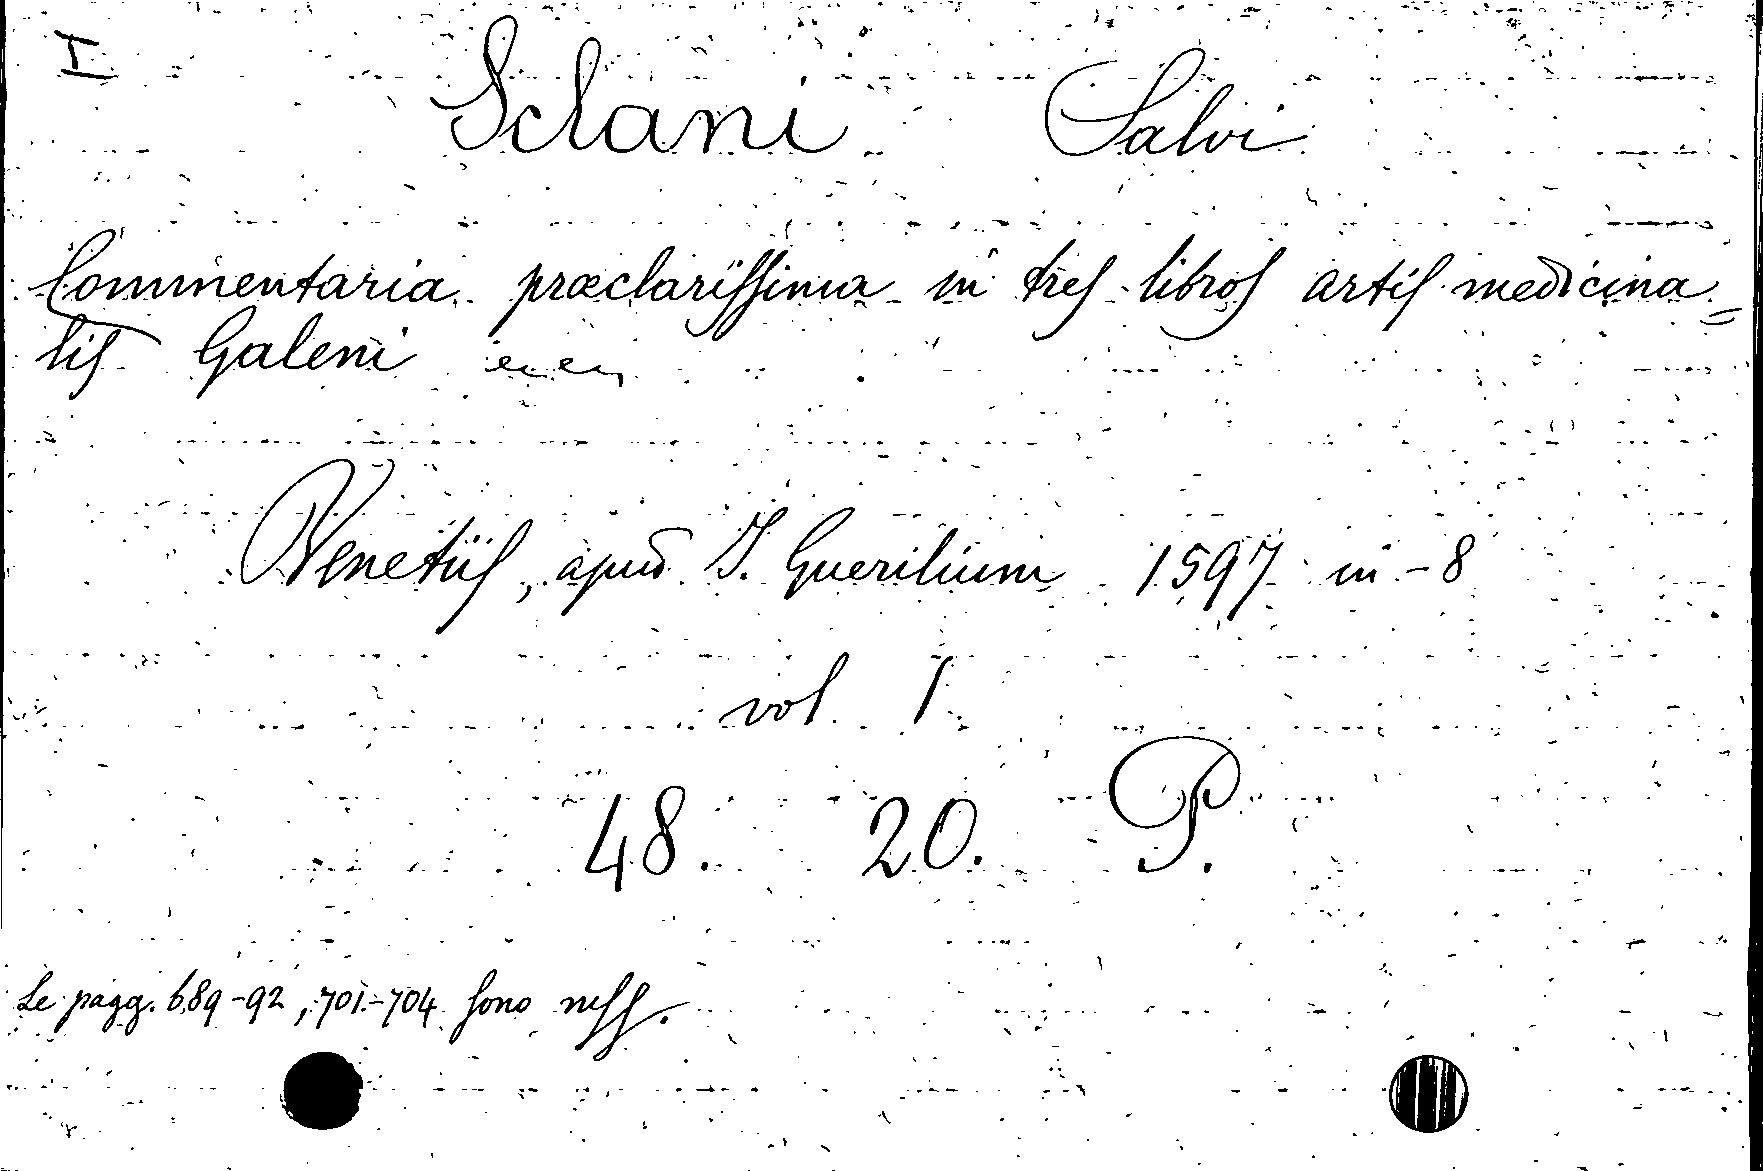 I
Sclani Salvi
Commentaria præclarissima in tres libros artis medicina=
lis Galeni
Venetiis, apud I. Guerilium 1597 in-8
vol. 1
48. 20. P.
Le pagg. 689-92, 701-704 sono mss.